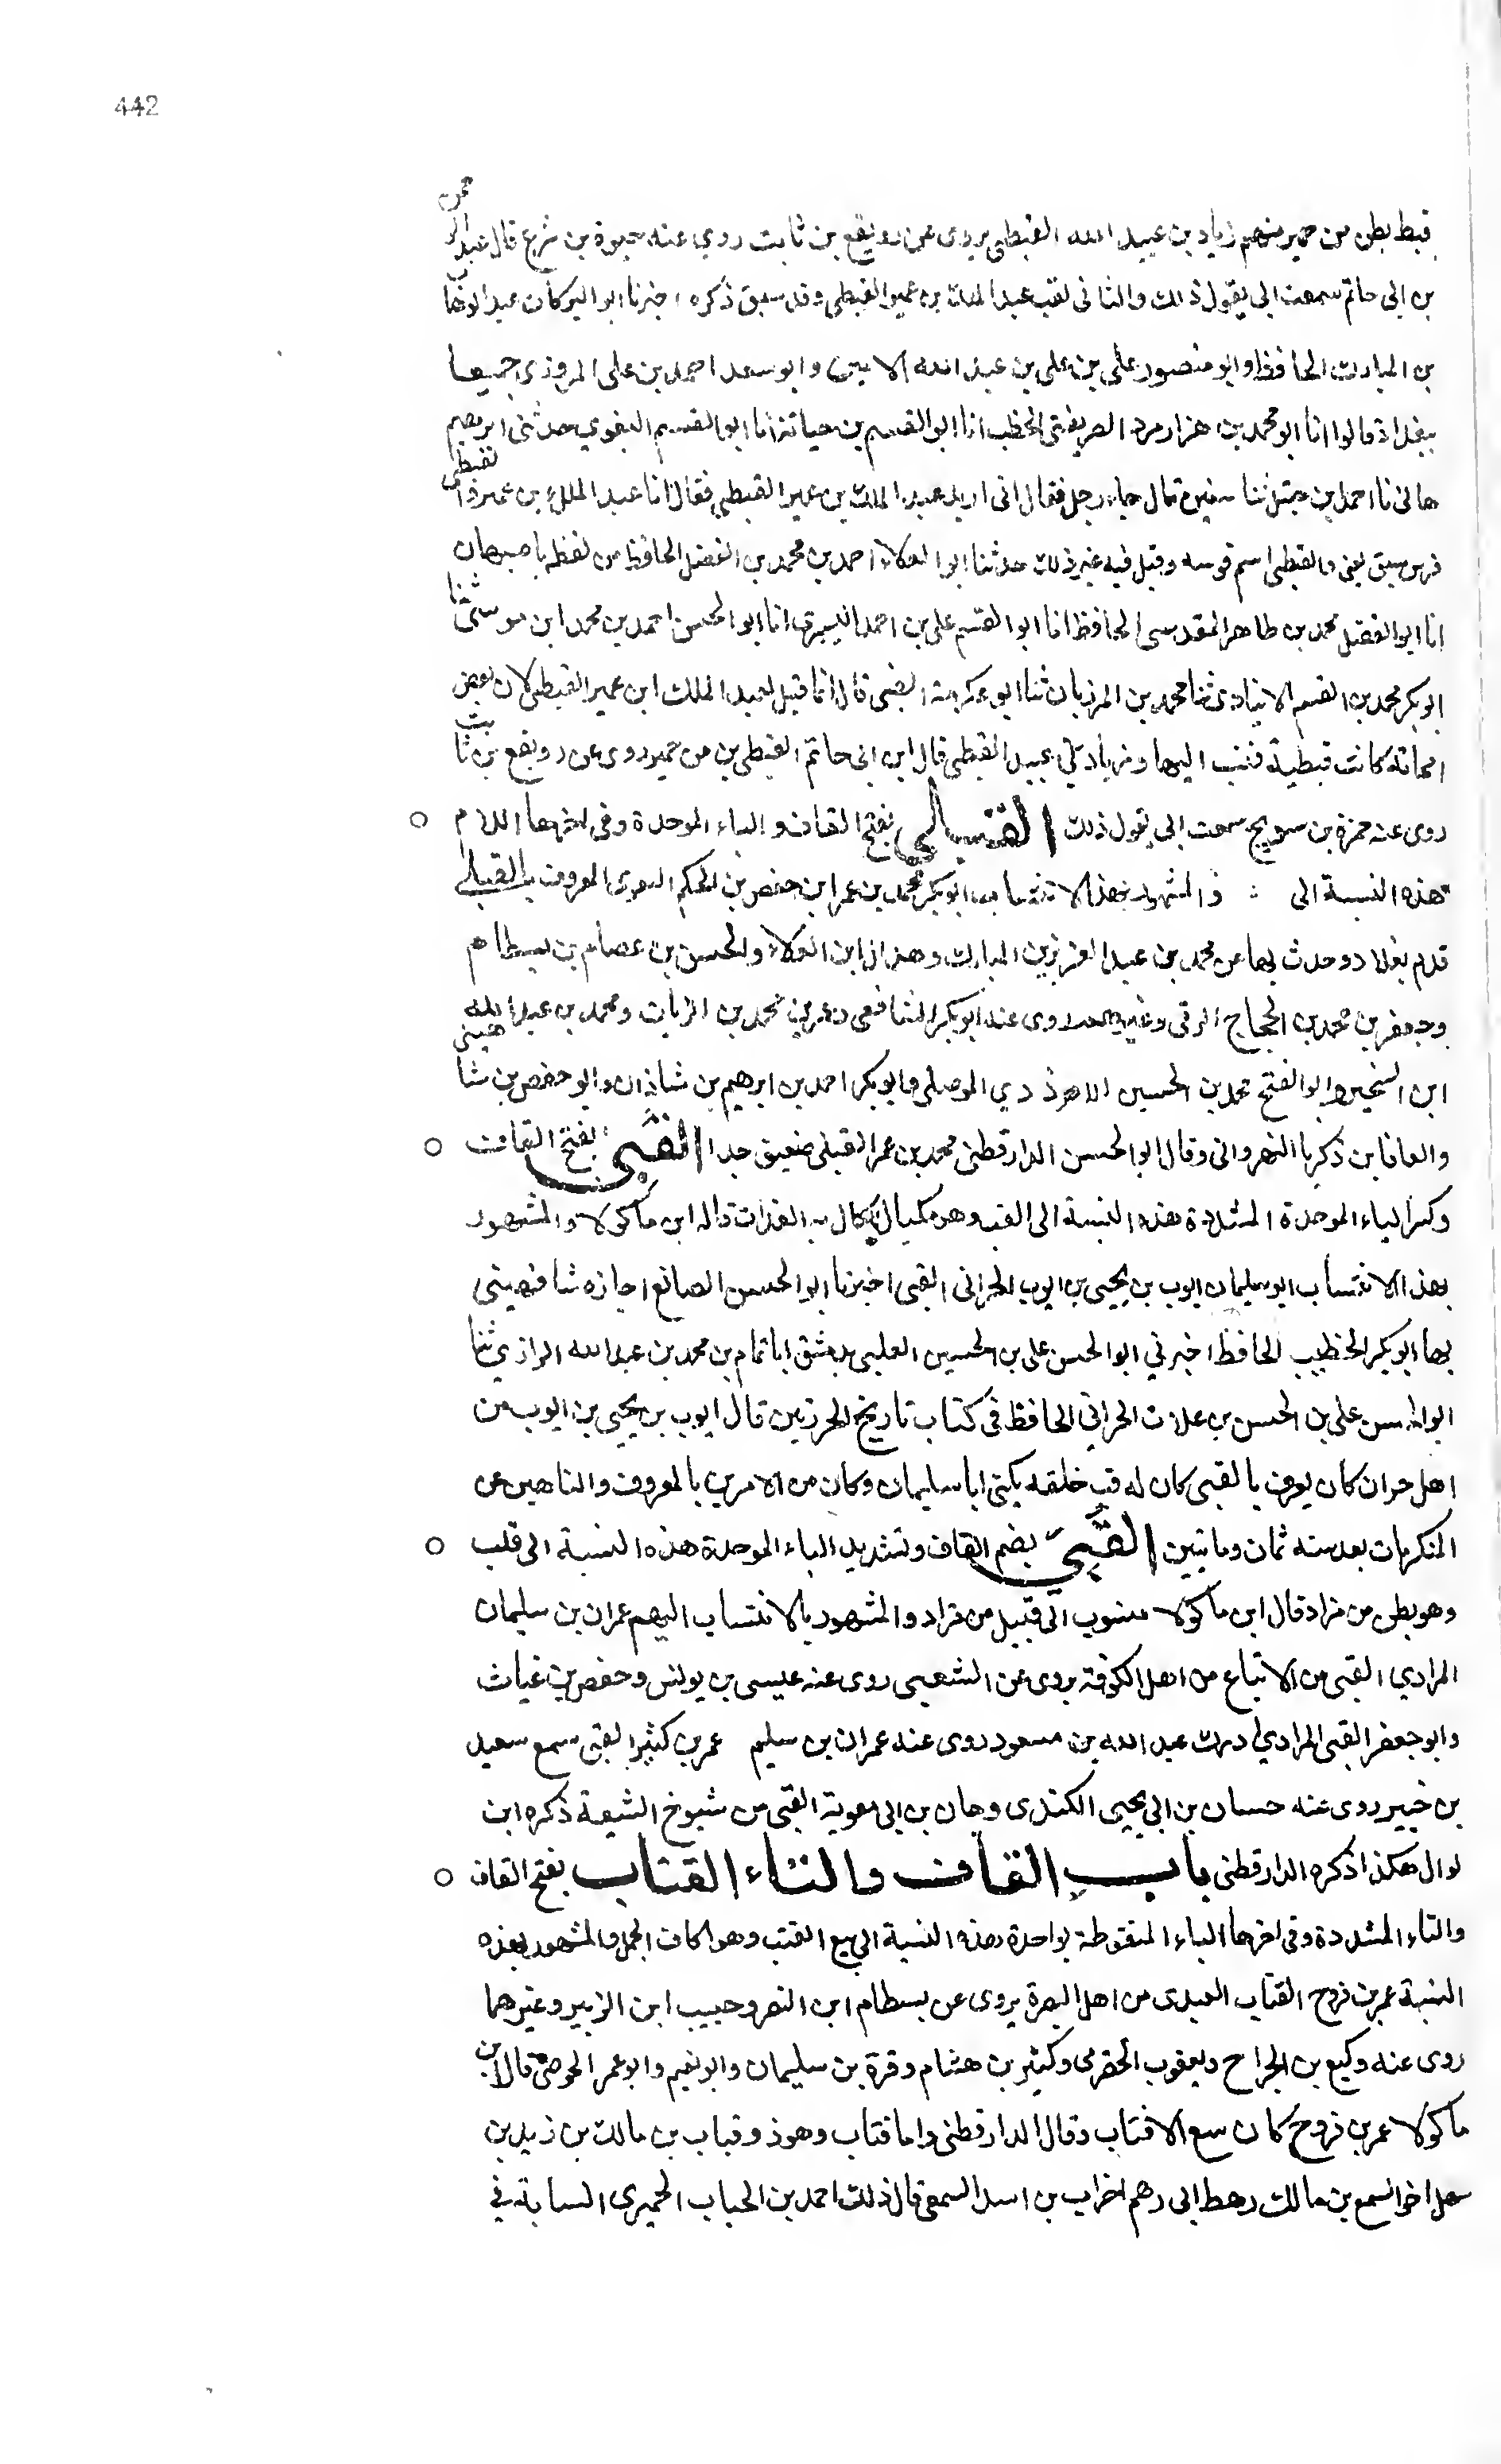 442
قبط بطن من حمير منهم زياد بن عبيد الله القبطي يروي عن رويفع بن ثابت روي عنه حيوة بن شريح قال عبد الرحمن
بن ابي حاتم سمعت ابي يقول ذلك والثاني لقب عبد الملك بن عمير القبطي وقد سبق ذكره اخبرنا ابو البركات عبد الوهاب
بن المبارك الحافظ وابو منصور علي بن علي بن عبد الله الامين وابو سعد احمد بن علي المروزي جميعا
ببغداذ قالوا انا ابو محمد بن هزارمرد الصريفيني الخطيب انا ابو القسم بن حبابة انا ابو القسم البغوي حدثني ابرهيم
هاني نا احمد بن حنبل ثنا سفين قال جاء رجل فقال اني اريد عبد الملك بن عمير القبطي فقال انا عبد الملك بن عمير والقبطي
فرس سبق يعني والقبطي اسم فرسه وقيل فيه غير ذلك حدثنا ابو العلاء احمد بن محمد بن الفضل الحافظ من لفظه باصبهان
انا ابو الفضل محمد بن طاهر المقدسي الحافظ انا ابو القسم علي بن احمد انا ابو الحسن احمد بن محمد ابن موسى ثنا
ابو بكر محمد بن القسم الانباري ثنا محمد بن المرزبان ثنا ابو عكرمة الضبي قال انما قيل لعبد الملك ابن عمير القبطي لان بعض
امهاته كانت قبطية فنسب اليها وزياد بن عبيد القبطي قال ابن ابي حاتم القبطي بن من حمير روى عن رويفع بن ثابت
روى عنه حمزة بن سمعت ابي يقول ذلك القبالي بفتح القاف والباء الموحدة وفي اخرها اللام
هذه النسبة الى والمشهور بهذا الانتساب ابو بكر محمد بن عمر ابن حفص بن الحكم المعروف بالقبلي
قدم بغداد وحدث بها عن محمد بن عبد العزيز بن المبارك وهلال ابن العلاء والحسن بن عصام بن بسطام
وجعفر بن محمد بن الحجاج الرقي وغيرهم روى عنه ابو بكر الشافعي وعمر بن محمد بن الزيات ومحمد بن عبيد الله
ابن الشخير وابو الفتح محمد بن الحسين الازدي الموصلي وابو بكر احمد بن ابرهيم بن شاذان وابو حفص بن شاهين
والمعافا بن زكريا النهرواني وقال ابو الحسن الدارقطني محمد بن عمر القبلي ضعيف جدا القبي بفتح القاف
وكسر الباء الموحدة المشددة هذه النسبة الى القب وهو مكيال يكال به الغلات قاله ابن ماكولا والمشهور
بهذا الانتساب ابو سليمان ايوب بن يحيى بن ايوب الحراني القبي اخبرنا ابو الحسن الصانع اجازه شافهيني
بها ابو بكر الخطيب الحافظ اخبرني ابو الحسن علي بن الحسين بدمشق انا تمام بن محمد بن عبد الله الرازي ثنا
ابو الحسن علي بن الحسن بن علان الحراني الحافظ في كتاب تاريخ الجزريين قال ايوب بن يحيى بن ايوب من
اهل حران كان يعرف بالقبي كان له قب خلفه يكنى ابا سليمان وكان من الامرين بالمعروف والناهين عن
المنكر مات بعد سنه ثمان ومايتين القبي بضم القاف وتشديد الباء الموحدة هذه النسبة الى قب
وهو بطن من مراد قال ابن ماكولا منسوب الى قبيل من مراد والمشهور بالانتساب اليهم عمران بن سليمان
المرادي القبي من الاتباع من اهل الكوفة يروى عن الشعبي روى عنه عيسى بن يونس وحفص بن غياث
وابو جعفر القبي المرادي ادرك عبد الله بن مسعود روى عنه عمران بن سليم عمر بن كثير القبي سمع سعيد
بن جبير روى عنه حسان بن ابي يحيى الكندى وحان بن ابي معوية القبي من شيوخ الشيعة ذكره ابن
هكذا ذكره الدارقطني باب القاف والتاء القتاب بفتح القاف
والتاء المشددة وفي اخرها الباء المنقوطة بواحدة هذه النسبة الى بيع القتب وهو اكاف الجمل والمشهور بهذه
النسبة عمر بن فروح القتاب العبدى من اهل البصرة يروى عن بسطام ابن النضر وحبيب ابن الزبير وغيرهما
روى عنه وكيع بن الجراح ويعقوب الحضرمي وكثير بن هشام وقرة بن سليمان وابو نعيم وابو عمر الحوضي قال ابن
ماكولا عمر بن فروح كان يبيع الاقتاب وقال الدارقطني واما قتاب وهو ذو قتاب بن مالك بن زيد بن
سهل اخو السمع بن مالك رهط ابي رهم احزاب بن اسد السمعي قال ذلك احمد بن الحباب الحميرى النسابة في